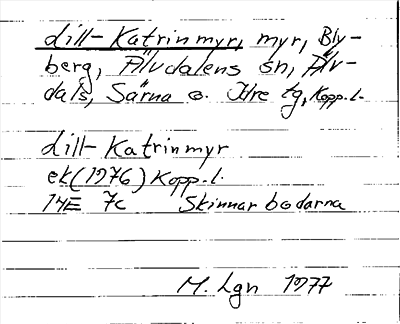 Lill-Katrinmyr, myr, Bly-
berg, Älvdalens sn, Älv-
dals, Särna o. Idre tg, Kopp.l.
Lill-Katrinmyr
ek (1976) Kopp.l.
14E 7c Skinnarbodarna
M. Lgn 1977